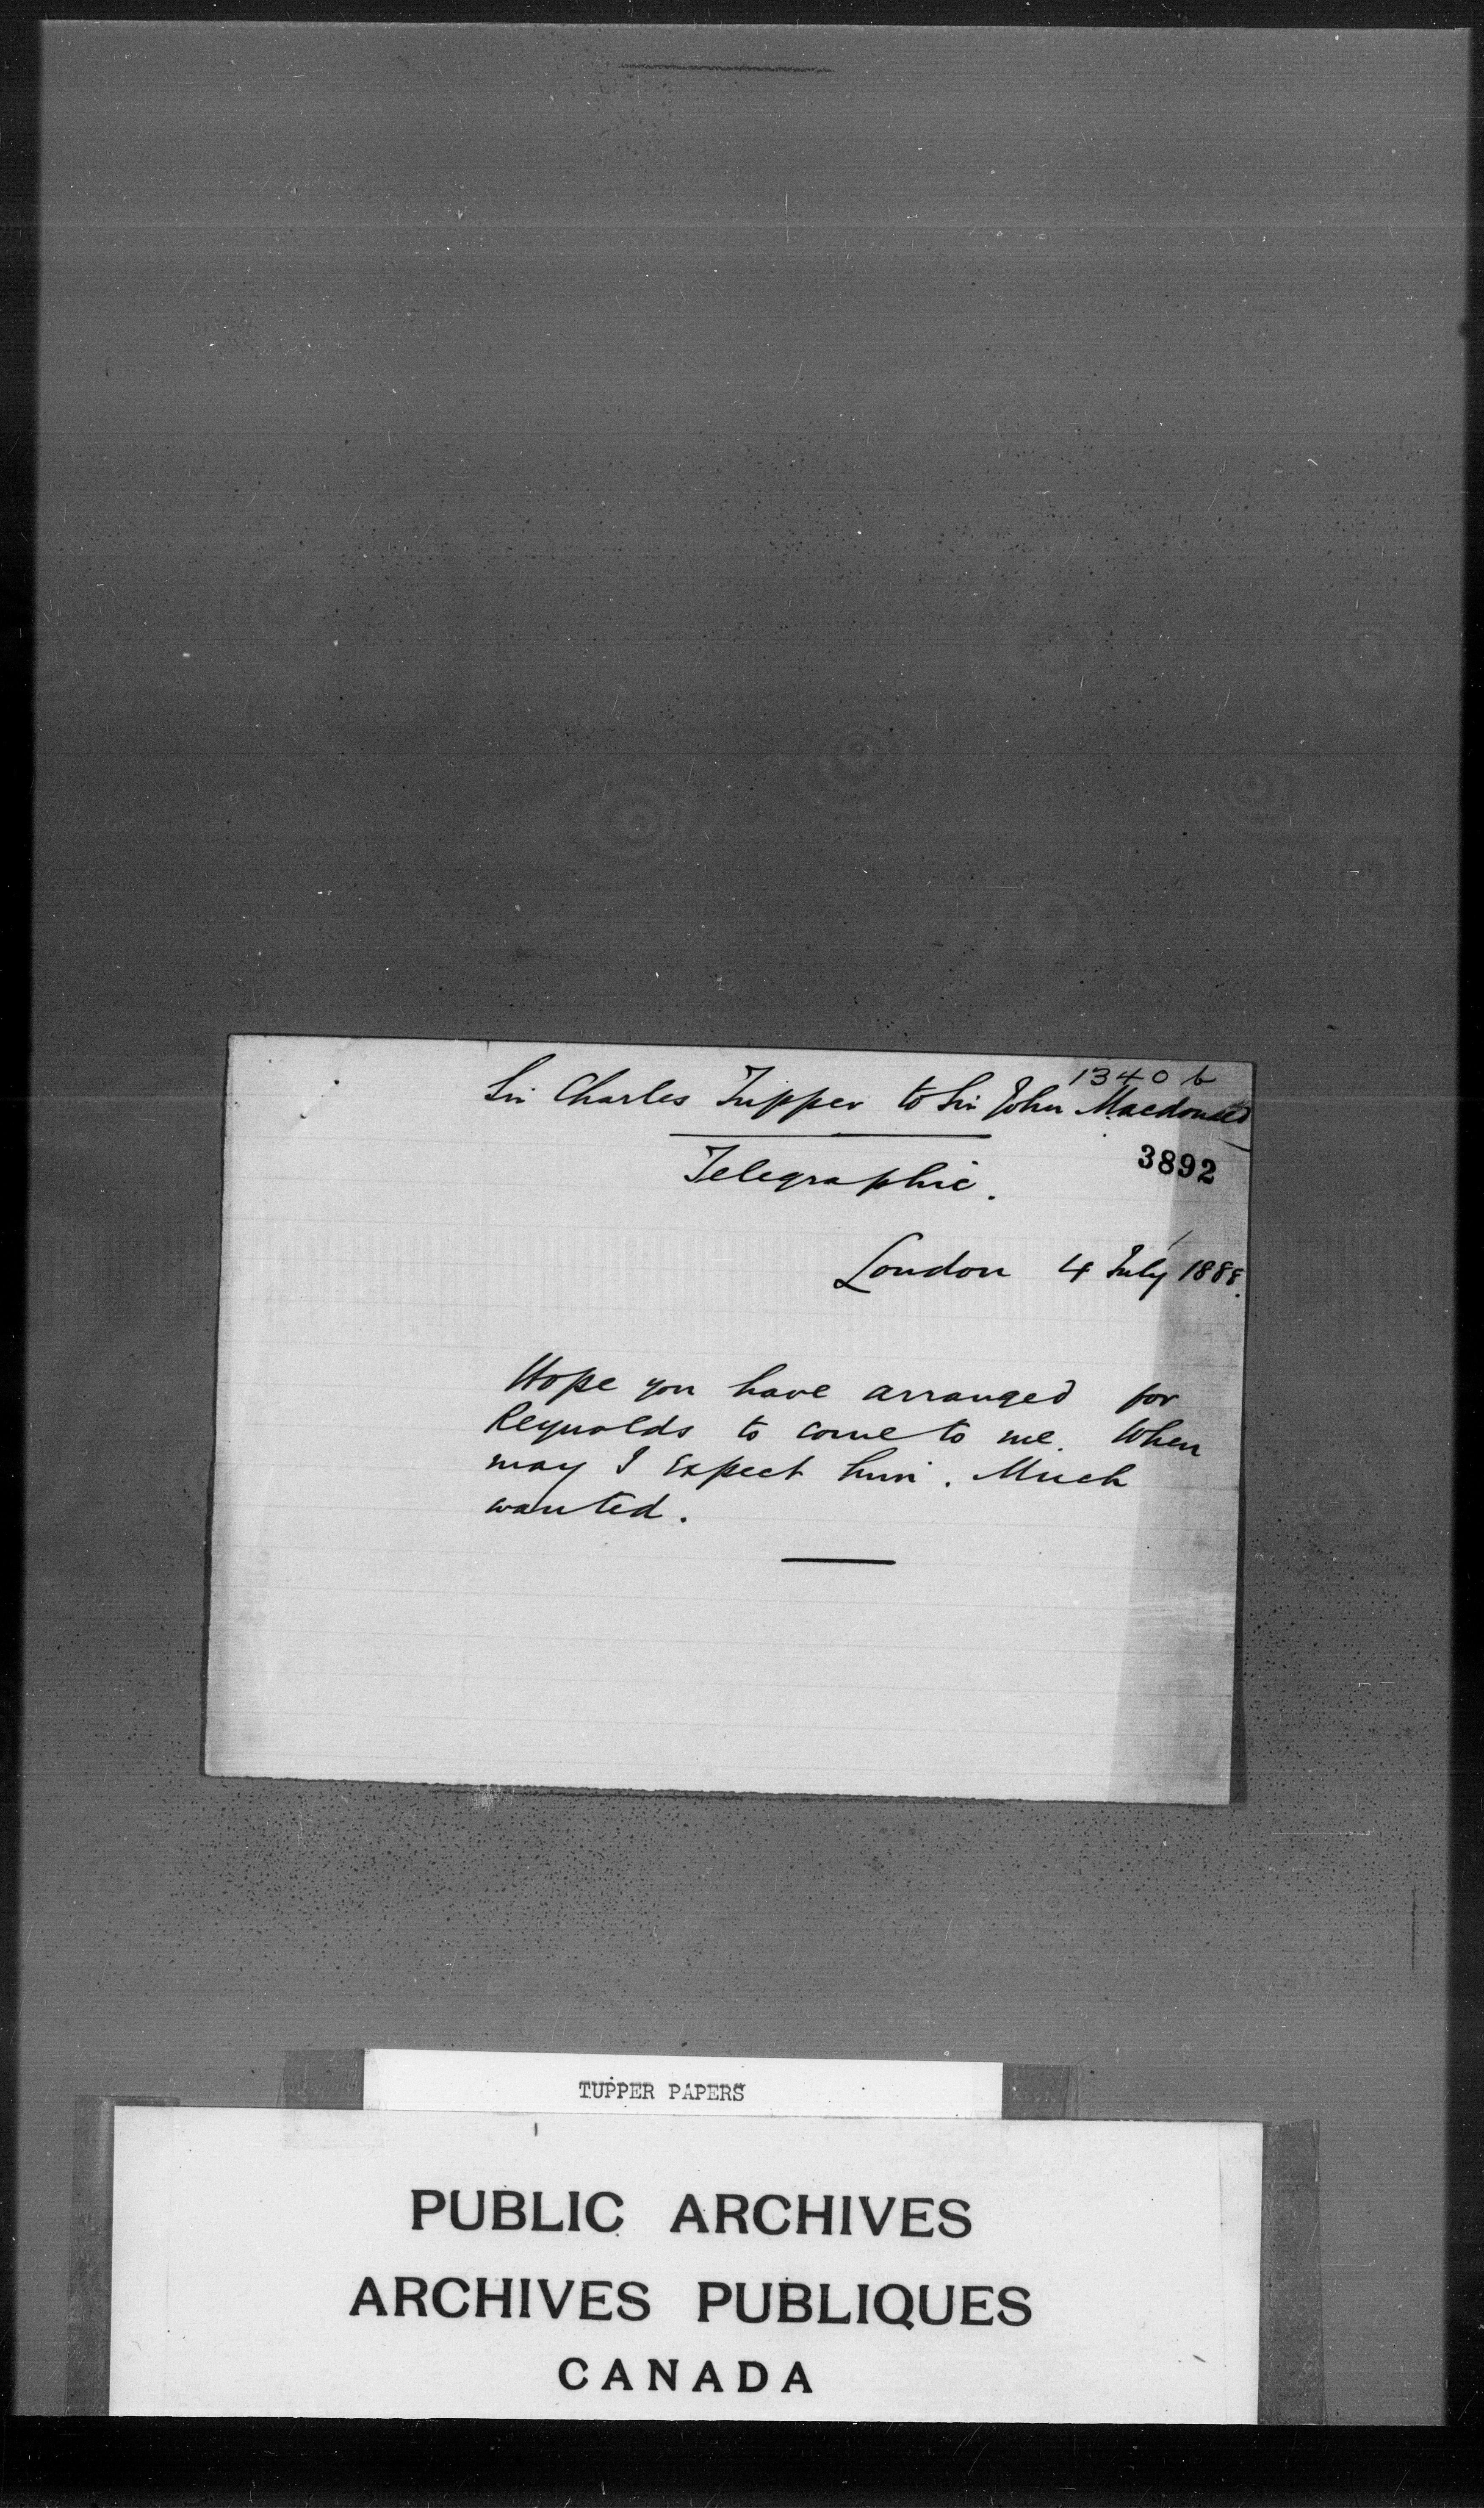 1340 b
Sir Charles Tupper to Sir John Macdonald
Telegraphic.
3892
London 4 July 1888.
Hope you have arranged for
Reynolds to come to me. When
may I expect him. Much
wanted.
TUPPER PAPERS
PUBLIC ARCHIVES
ARCHIVES PUBLIQUES
CANADA